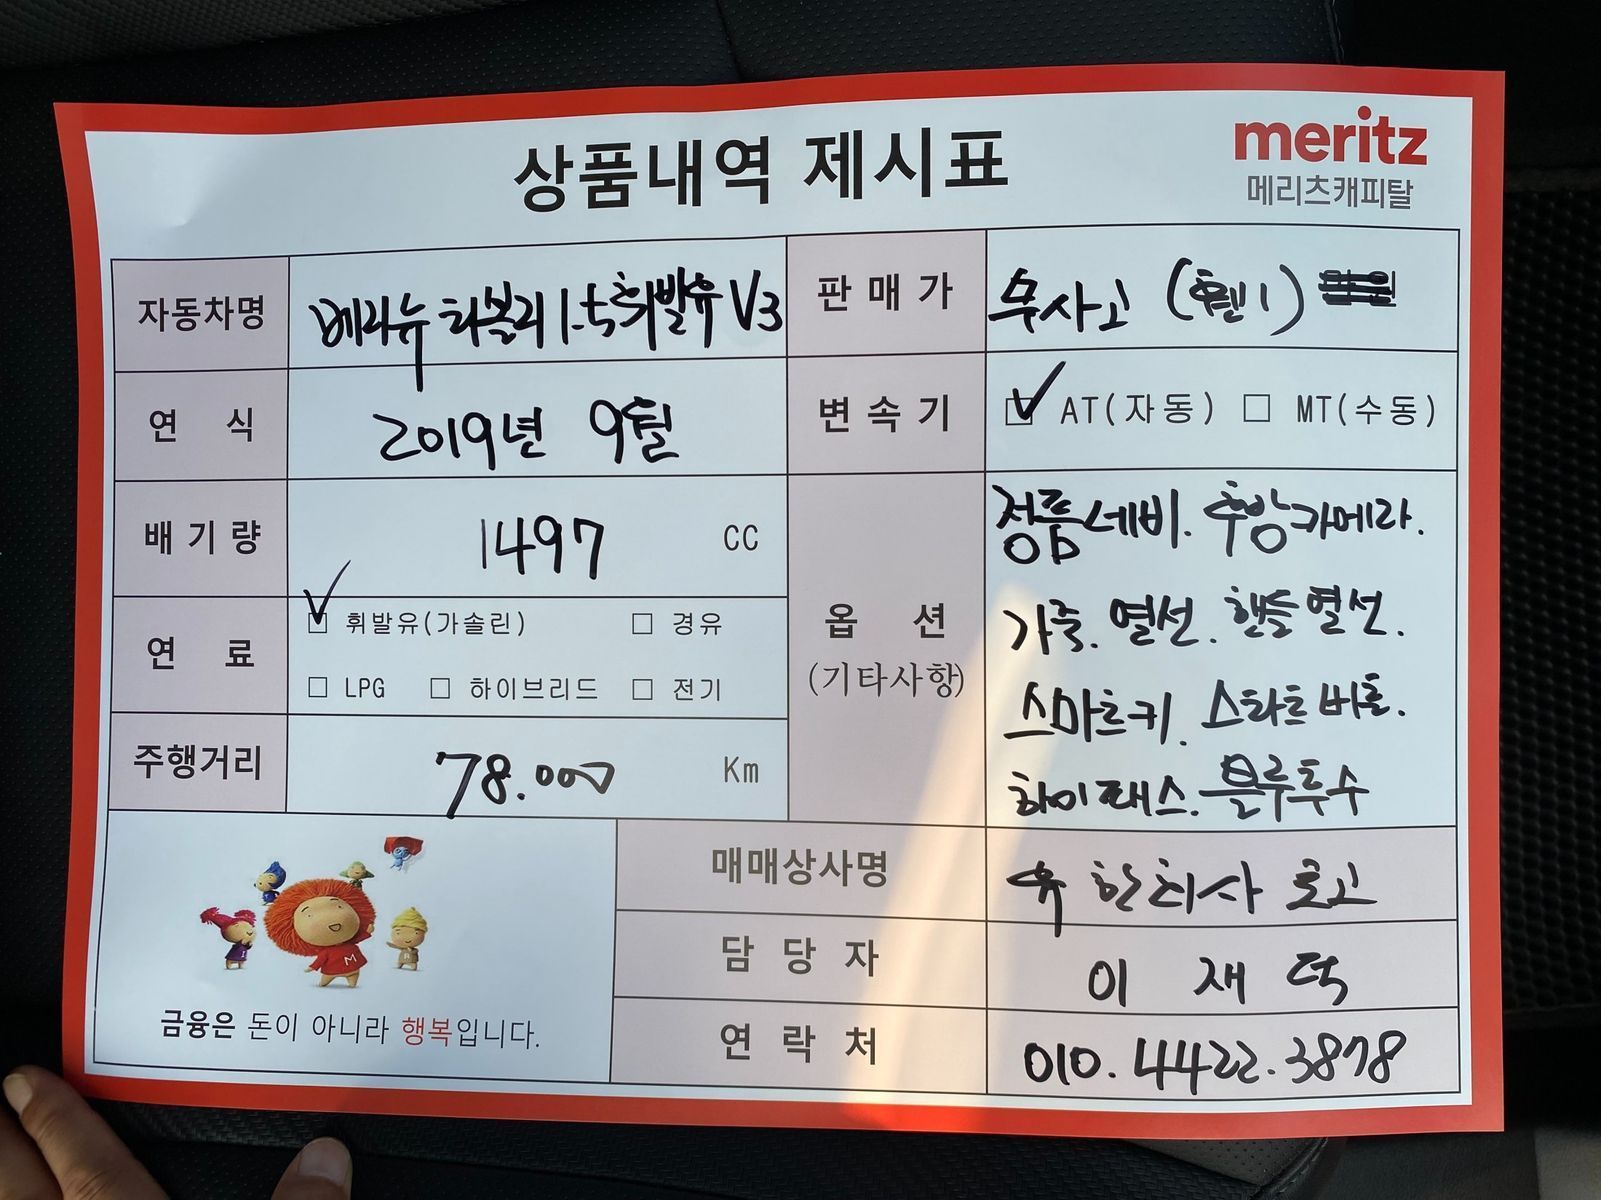 상품내역 제시표
meritz
메리츠캐피탈
자동차명 베리뉴 티볼리 1.5 휘발유 V3
판매가 무사고 (휀1)
연식 2019년 9월
변속기 ☑ AT(자동) ☐ MT(수동)
배기량 1497 CC
연료 ☑ 휘발유(가솔린) ☐ 경유
☐ LPG ☐ 하이브리드 ☐ 전기
주행거리 78.000 Km
옵션
(기타사항)
정품네비. 후방카메라.
가죽. 열선. 핸들열선.
스마트키. 스타트버튼.
하이패스. 블루투수
매매상사명 유한회사 로고
담당자 이재덕
연락처 010.4422.3878
금융은 돈이 아니라 행복입니다.